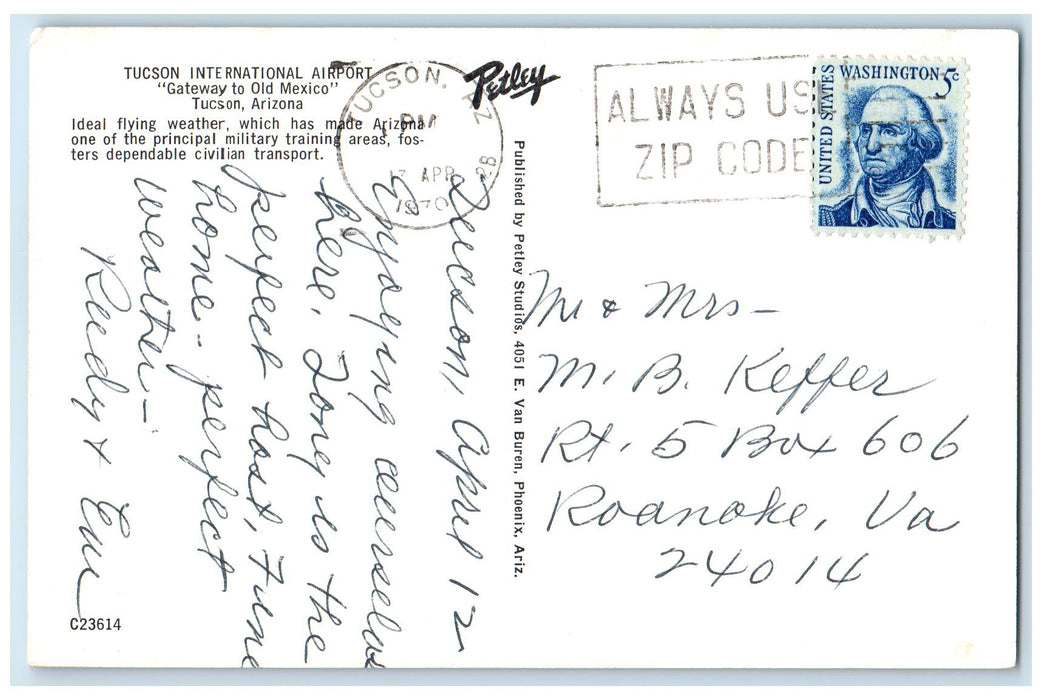 TUCSON INTERNATIONAL AIRPORT
"Gateway to Old Mexico"
Tucson, Arizona
Ideal flying weather, which has made Arizona
one of the principal military training areas, fos-
ters dependable civilian transport.
Petley
TUCSON, AZ
PM
13 APR
1970
ALWAYS US
ZIP CODE
UNITED STATES
WASHINGTON 5c
Tucson, April 12
Enjoying ourselves
here. Tony is the
perfect host, fine
home - perfect
weather -
Rudy &
Published by Petley Studios, 4051 E. Van Buren, Phoenix, Ariz.
Mr & Mrs -
M. B. Keffer
Rt. 5 Box 606
Roanoke, Va
24014
C23614